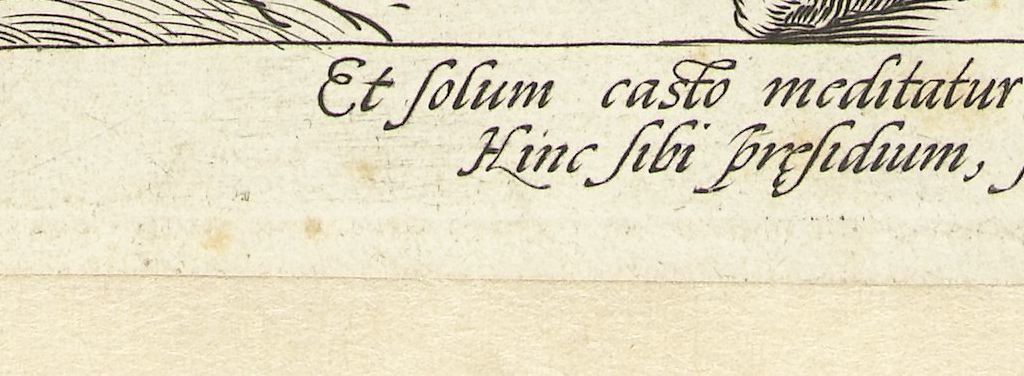 Et ſolum caſto meditatur
Hinc ſibi pręſidium,